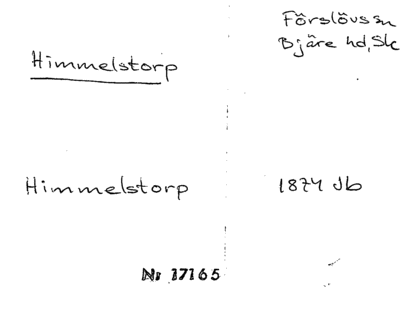 Förslövs sn
Bjäre hd, Sk
Himmelstorp
Himmelstorp
1874 Jb
Nr 17165